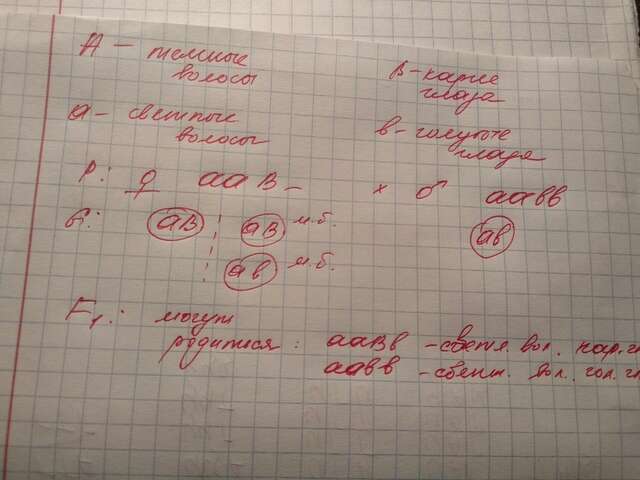 А – темные
волосы
В – карие
глаза
а – светлые
волосы
в – голубые
глаза
Р: ♀ ааВ– × ♂ аавв
G: аВ аВ м.б. ав
ав м.б.
F₁: могут
родится: ааВв – светл. вол. кар. гл
аавв – светл. вол. гол. гл